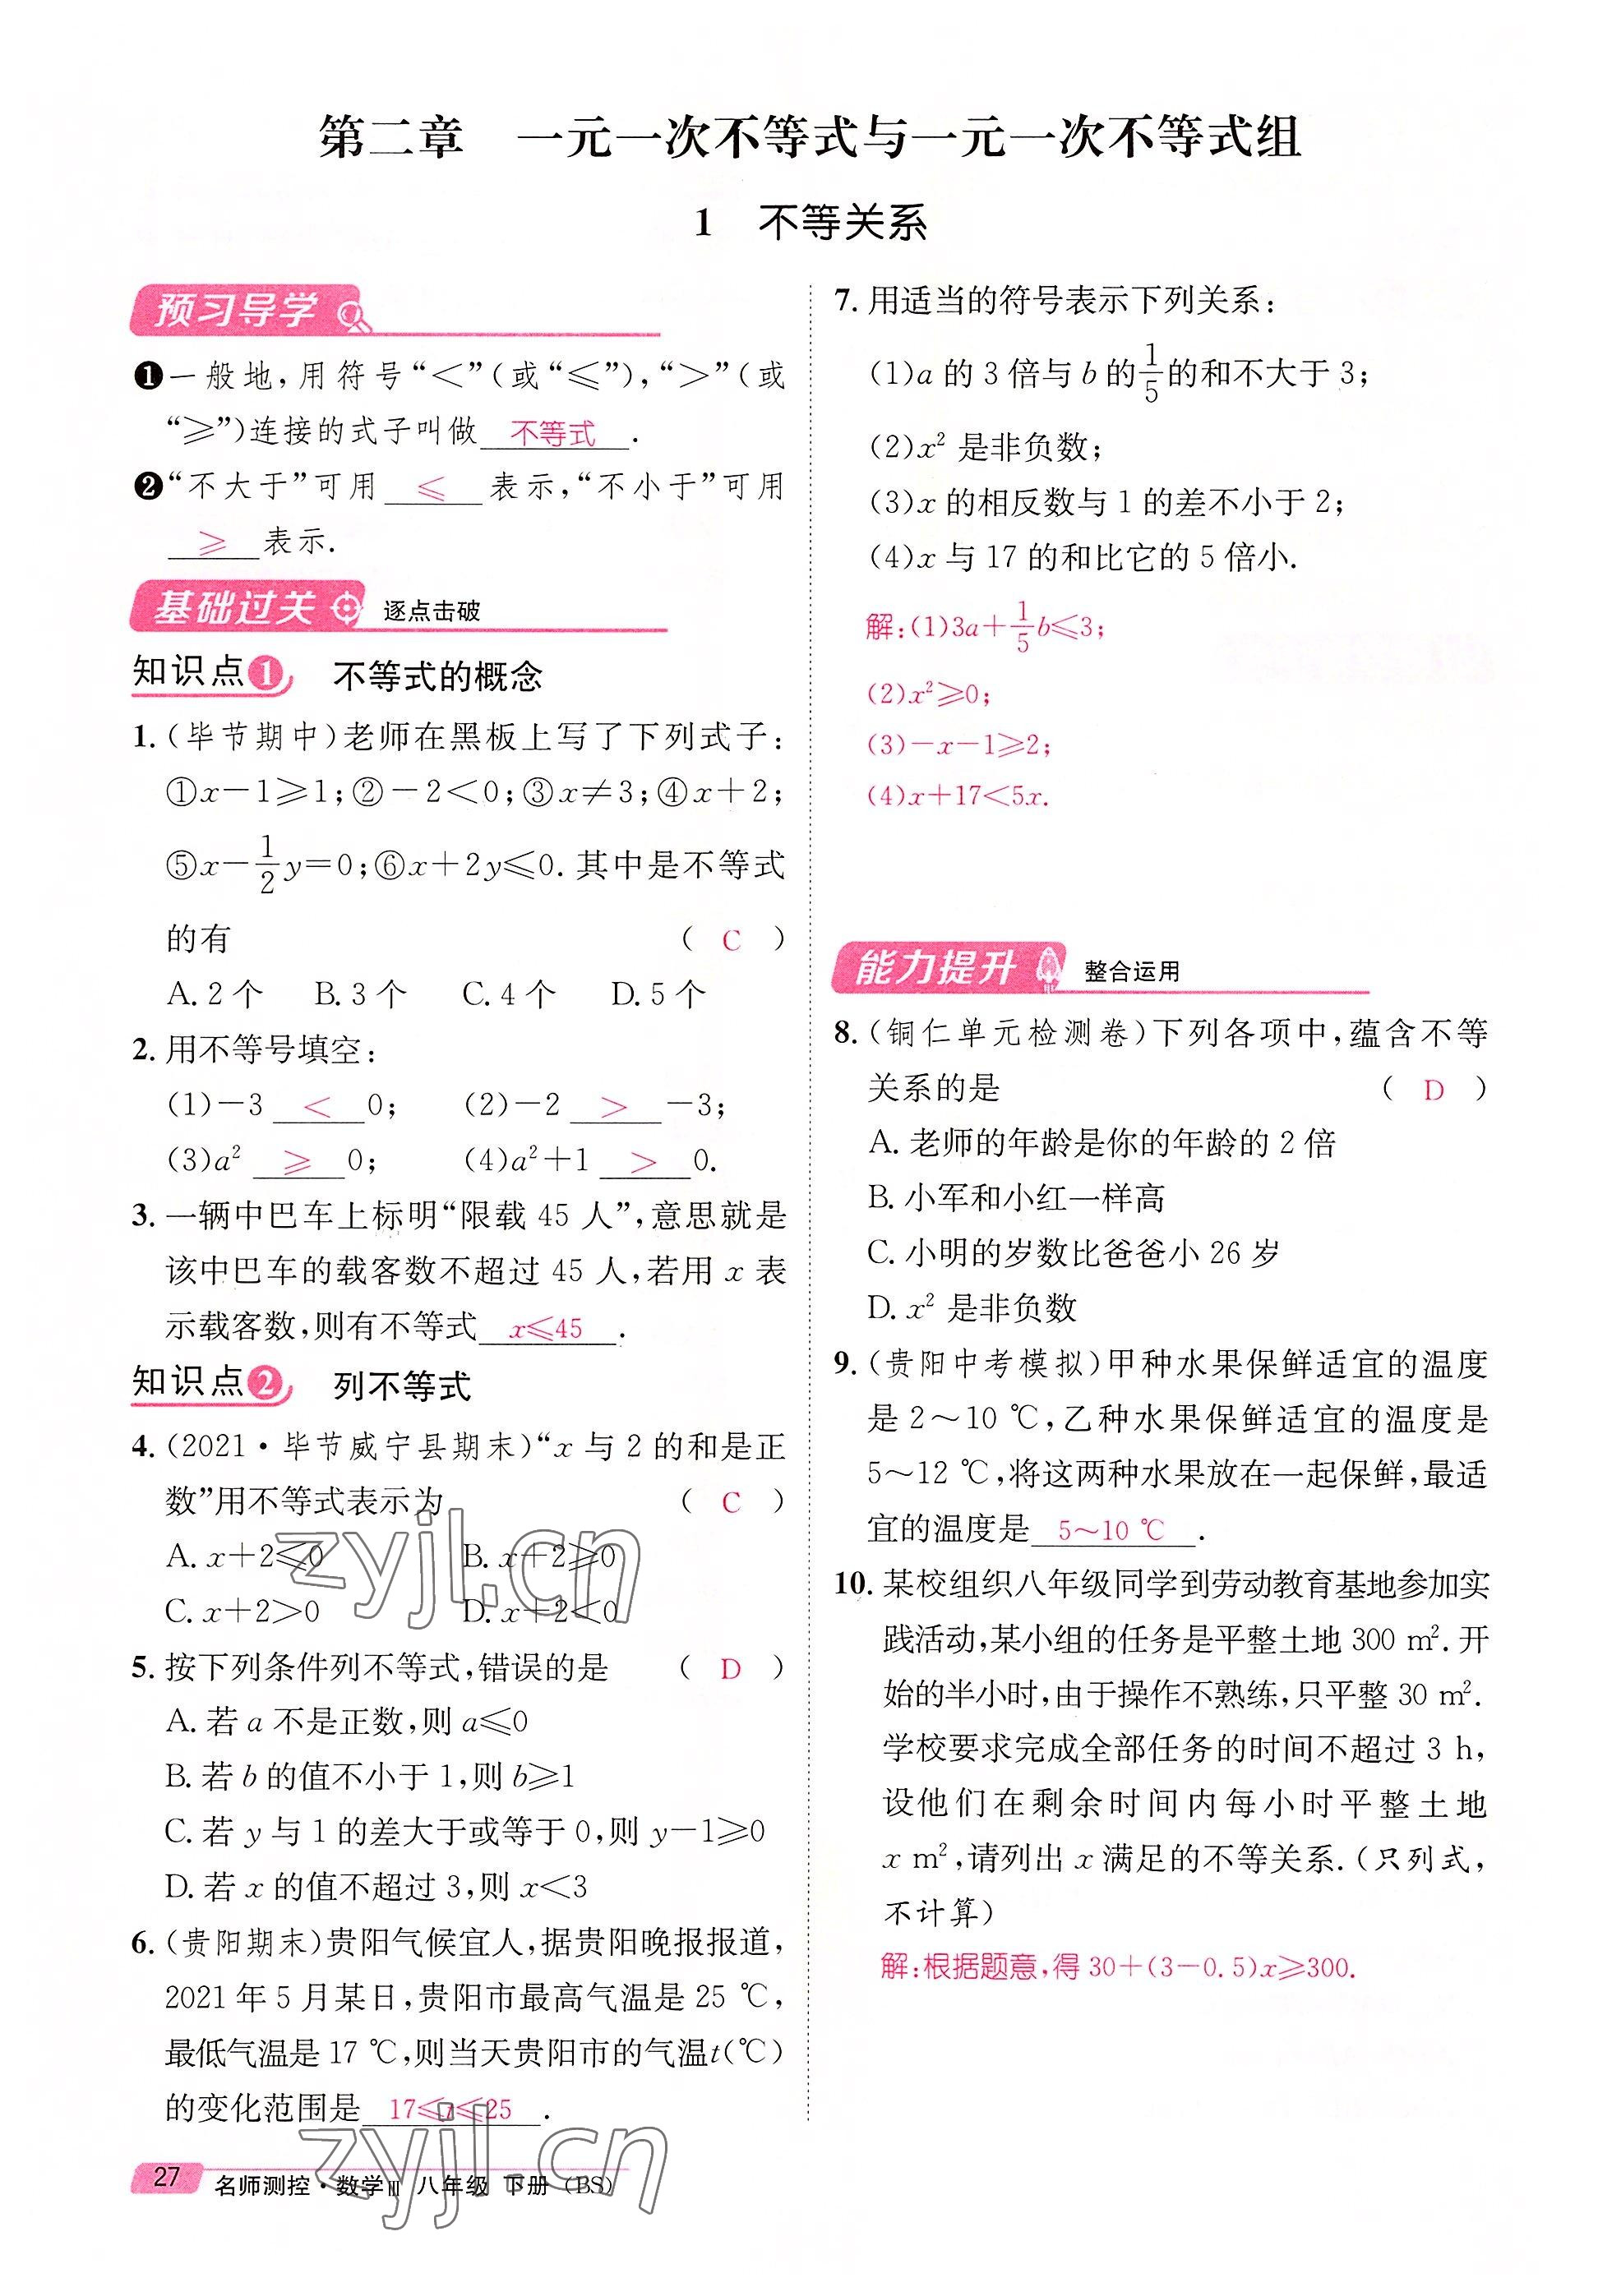 第二章　一元一次不等式与一元一次不等式组
1　不等关系
预习导学
❶一般地,用符号“<”(或“≤”),“>”(或
“≥”)连接的式子叫做 不等式 .
❷“不大于”可用 ≤ 表示,“不小于”可用
≥ 表示.
基础过关 逐点击破
知识点1　不等式的概念
1.(毕节期中)老师在黑板上写了下列式子:
①x-1≥1;②-2<0;③x≠3;④x+2;
⑤x-1/2y=0;⑥x+2y≤0.其中是不等式
的有 ( C )
A.2个　B.3个　C.4个　D.5个
2.用不等号填空:
(1)-3 < 0;　(2)-2 > -3;
(3)a² ≥ 0;　(4)a²+1 > 0.
3.一辆中巴车上标明“限载45人”,意思就是
该中巴车的载客数不超过45人,若用x表
示载客数,则有不等式 x≤45 .
知识点2　列不等式
4.(2021·毕节威宁县期末)“x与2的和是正
数”用不等式表示为 ( C )
A.x+2≤0　B.x+2≥0
C.x+2>0　D.x+2<0
5.按下列条件列不等式,错误的是 ( D )
A.若a不是正数,则a≤0
B.若b的值不小于1,则b≥1
C.若y与1的差大于或等于0,则y-1≥0
D.若x的值不超过3,则x<3
6.(贵阳期末)贵阳气候宜人,据贵阳晚报报道,
2021年5月某日,贵阳市最高气温是25 ℃,
最低气温是17 ℃,则当天贵阳市的气温t(℃)
的变化范围是 17≤t≤25 .
7.用适当的符号表示下列关系:
(1)a的3倍与b的1/5的和不大于3;
(2)x²是非负数;
(3)x的相反数与1的差不小于2;
(4)x与17的和比它的5倍小.
解:(1)3a+1/5b≤3;
(2)x²≥0;
(3)-x-1≥2;
(4)x+17<5x.
能力提升 整合运用
8.(铜仁单元检测卷)下列各项中,蕴含不等
关系的是 ( D )
A.老师的年龄是你的年龄的2倍
B.小军和小红一样高
C.小明的岁数比爸爸小26岁
D.x²是非负数
9.(贵阳中考模拟)甲种水果保鲜适宜的温度
是2～10 ℃,乙种水果保鲜适宜的温度是
5～12 ℃,将这两种水果放在一起保鲜,最适
宜的温度是 5～10 ℃ .
10.某校组织八年级同学到劳动教育基地参加实
践活动,某小组的任务是平整土地300 m².开
始的半小时,由于操作不熟练,只平整30 m².
学校要求完成全部任务的时间不超过3 h,
设他们在剩余时间内每小时平整土地
x m²,请列出x满足的不等关系.(只列式,
不计算)
解:根据题意,得30+(3-0.5)x≥300.
zyjl.cn
zyjl.cn
27 名师测控·数学Ⅲ 八年级 下册 (BS)